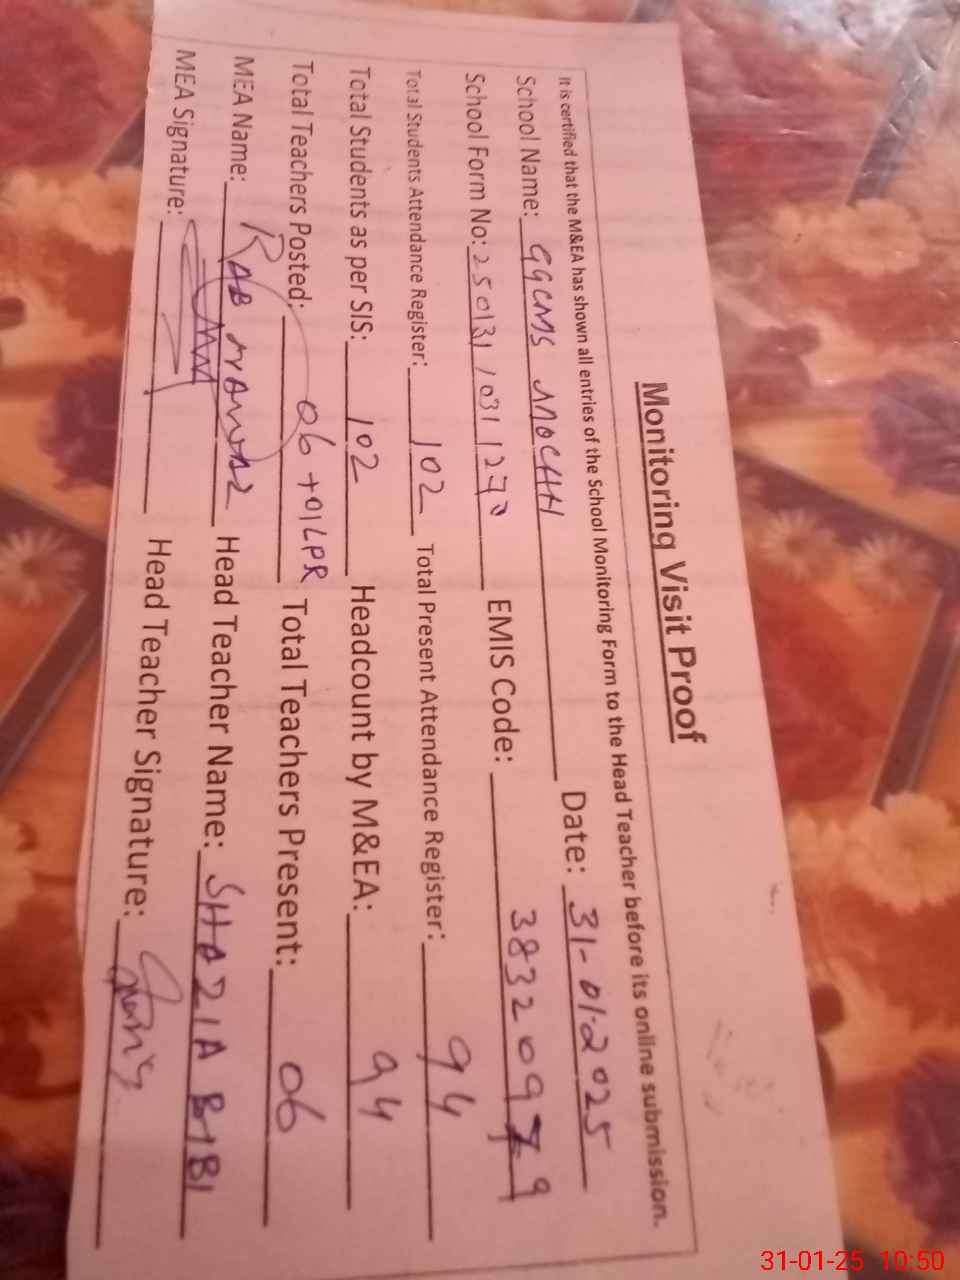 Monitoring Visit Proof
It is certified that the M&EA has shown all entries of the School Monitoring Form to the Head Teacher before its online submission.
School Name: GGCMS MOCHH Date: 31-01-2025
School Form No: EMIS Code: 383209
Total Students Attendance Register: 102 Total Present Attendance Register: 94
Total Students as per SIS: 102 Headcount by M&EA: 94
Total Teachers Posted: 06 +01LPR Total Teachers Present: 06
MEA Name: RAB NAWAZ Head Teacher Name: SHAZIA BIBI
MEA Signature: Head Teacher Signature:
31-01-25 10:50